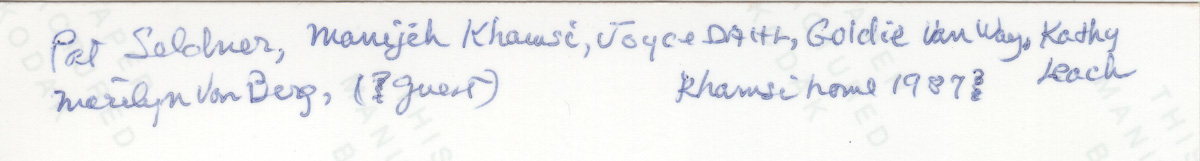 Pat Seldner, Manijeh Khamsi, Joyce Goldie Van Way, Kathy Leach
Marilyn Von Berg, (? guest) Khamsi home 1987?